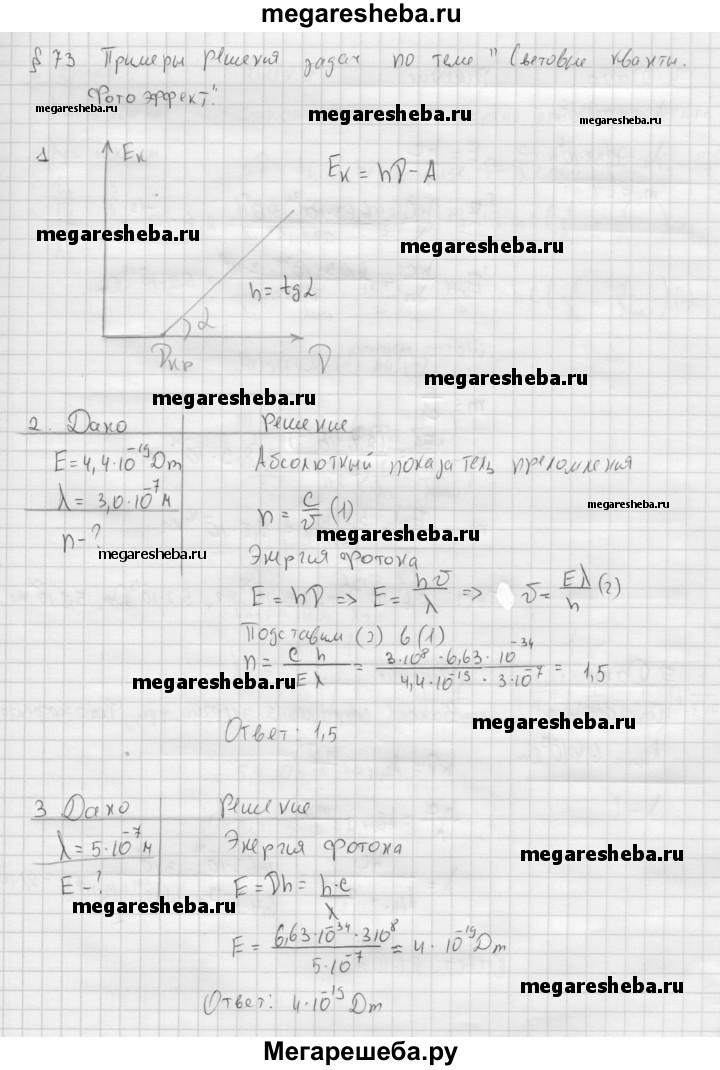 megaresheba.ru
§ 73 Примеры решения задач по теме "Световые кванты.
Фотоэффект".
megaresheba.ru
megaresheba.ru
megaresheba.ru
1
Eк
Eк = hν - A
megaresheba.ru
megaresheba.ru
h = tgα
α
νкр
ν
megaresheba.ru
megaresheba.ru
2. Дано
Решение
E = 4,4·10⁻¹⁹ Дж
Абсолютный показатель преломления
λ = 3,0·10⁻⁷ м
n = c/v (1)
megaresheba.ru
n - ?
megaresheba.ru
megaresheba.ru
Энергия фотона
E = hν => E = hv/λ => v = Eλ/h (2)
Подставим (2) в (1)
n = c h/Eλ = 3·10⁸ · 6,63·10⁻³⁴/4,4·10⁻¹⁹ · 3·10⁻⁷ = 1,5
megaresheba.ru
megaresheba.ru
Ответ: 1,5
3 Дано
Решение
λ = 5·10⁻⁷ м
Энергия фотона
megaresheba.ru
E - ?
E = νh = h·c/λ
megaresheba.ru
megaresheba.ru
E = 6,63·10⁻³⁴·3·10⁸/5·10⁻⁷ = 4·10⁻¹⁹ Дж
megaresheba.ru
Ответ: 4·10⁻¹⁹ Дж
Мегарешеба.ру